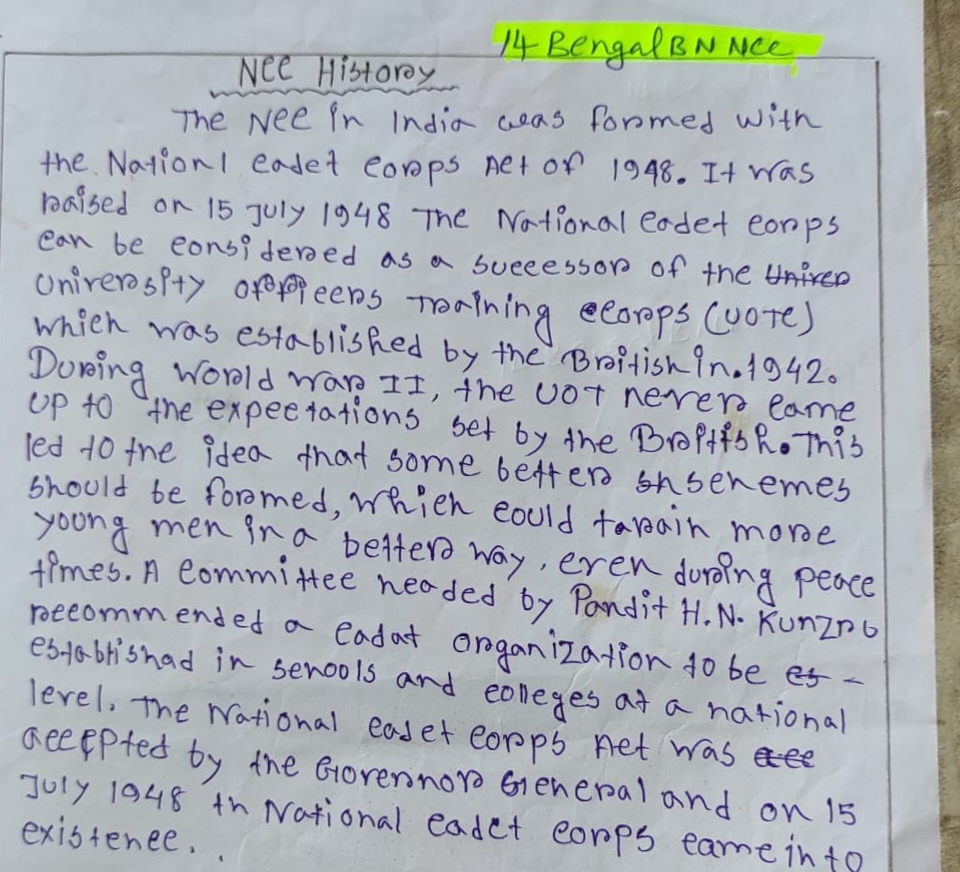 14 Bengal BN NCC
NCC History
The NCC in India was formed with
the Nationl cadet corps Act of 1948. It was
raised on 15 July 1948 The National cadet corps
can be considered as a successor of the Univer
University officers Training ccorps (UOTC)
which was established by the British in. 1942.
During World war II, the UOT never came
up to the expectations set by the British. This
led to the idea that some better sh schemes
should be formed, which could tarain more
young men in a better way, even during peace
times. A Committee headed by Pandit H. N. Kunzru
recommended a cadat organization to be es -
established in schools and colleges at a national
level. The National cadet corps Act was acc
accepted by the Governor General and on 15
July 1948 th National cadet corps came into
existence.